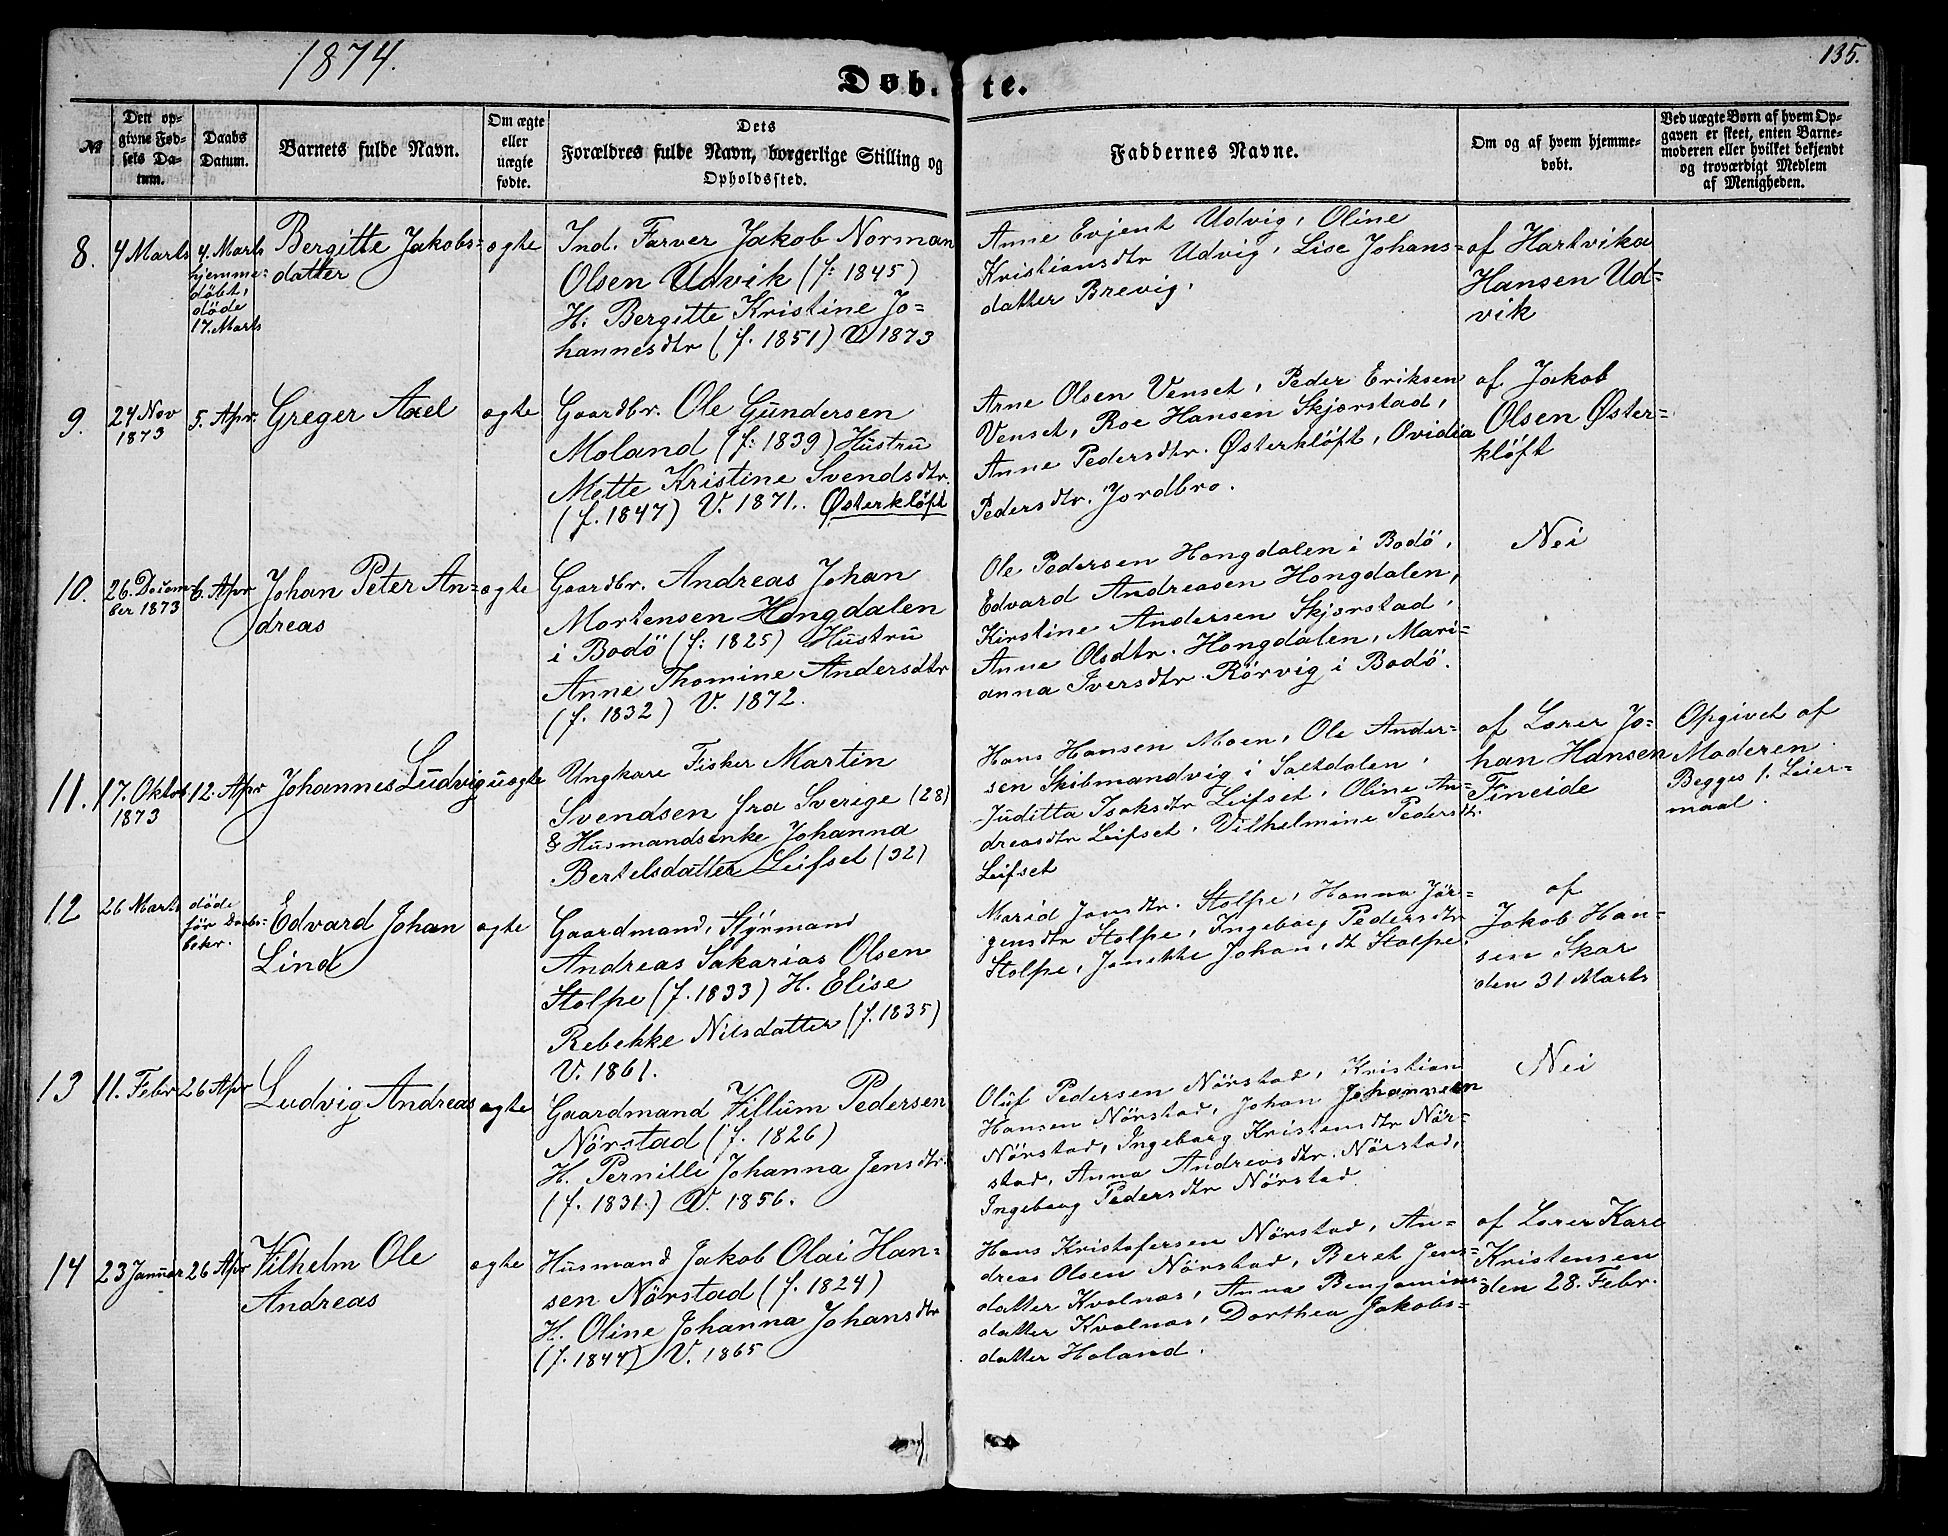 1874.
135.
Døbte.
№
Dett op-
givne Fød-
sels Da-
tum.
Daabs
Datum.
Barnets fulde Navn.
Om ægte
eller
uægte
fødte.
Dets
Forældres fulde Navn, borgerlige Stilling og
Opholdssted.
Faddernes Navne.
Om og af hvem hjemme-
døbt.
Ved uægte Børn af hvem Op-
gaven er skeet, enten Barne-
moderen eller hvilket bekjendt
og troværdigt Medlem
af Menigheden.
8.
4 Marts
4. Marts
hjemme-
døbt,
døde
17. Marts
Bergitte Jakobs=
datter
ægte
Ind. Farver Jakob Norman
Olsen Udvik (f: 1845)
H: Bergitte Kristine Jo=
hannesdtr (f. 1851) V 1873
Anne Evjent Udvig, Oline
Kristiansdtr Udvig, Lise Johans=
datter Brevig.
af Hartvika
Hansen Ud=
vik
9.
24 Nov
1873
5. Apr.
Greger Axel
ægte
Gaardbr. Ole Gundersen
Moland (f: 1839) Hustru
Mette Kristine Svendsdtr.
(f. 1847) V. 1871. Østerkløft
Arne Olsen Venset, Peder Eriksen
Venset, Roe Hansen Skjørstad,
Anne Pedersdtr. Østerkløft, Ovidia
Pedersdtr. Jordbro.
af Jakob
Olsen Øster=
kløft
10.
26. Decem-
ber 1873
6. Apr
Johan Peter An=
dreas
ægte
Gaardbr. Andreas Johan
Mortensen Hongdalen
i Bodö (f: 1825) Hustru
Anne Thomine Andersdtr
(f. 1832) V. 1872.
Ole Pedersen Hongdalen i Bodö,
Edvard Andreasen Hongdalen,
Kirstine Andersen Skjørstad,
Anne Olsdtr. Hongdalen, Mari=
anna Iversdtr. Rörvig i Bodö.
Nei
11.
17. Oktob
1873
12. Apr
Johannes Ludvig
uægte
Ungkare Fisker Martin
Svendsen fra Sverege (28)
& Husmandsenke Johanna
Bertelsdatter Leifset (32)
Hans Hansen Moen, Ole Ander-
sen Skibmandvig i Saltdalen,
Juditta Isaksdtr Leifset, Oline An-
dreasdtr Leifset, Vilhelmine Pedersdtr.
Leifset
af Lærer Jo=
han Hansen
Fineide
Opgivet af
Moderen.
Begges 1. Leier-
maal.
12
26 Marts
døde
før Daabs-
bekr.
Edvard Johan
Lind
ægte
Gaardmand, Styrmand
Andreas Sakarias Olsen
Stolpe (f. 1833) H. Elise
Rebekke Nilsdatter (f. 1835)
V. 1861.
Marid Jonsdtr. Stolpe, Hanna Jör-
gensdtr Stolpe, Ingeborg Pedersdtr
Stolpe, Janekke Johansdt Stolpe.
af
Jakob Han=
sen Skar
den 31 Marts
13
11. Febr
26 Apr
Ludvig Andreas
ægte
Gaardmand Villum Pedersen
Nörstad (f. 1826)
H. Pernille Johanna Jensdtr.
(f. 1831.) V. 1856.
Oluf Pedersen Nörstad, Kristian
Hansen Nörstad, Johan Johannesen
Nörstad, Ingeborg Kristensdtr Nör-
stad, Anna Andreasdtr. Nörstad,
Ingeborg Pedersdtr Nörstad.
Nei
14
23 Januar
26 Apr
Vilhelm Ole
Andreas
ægte
Husmand Jakob Olai Han=
sen Nörstad (f. 1824)
H. Oline Johanna Johansdtr
(f. 1844) V. 1865
Hans Kristofersen Nörstad, An=
dreas Olsen Nörstad, Beret Jens=
datter Kvalnæs, Anna Benjamins-
datter Kvalnæs, Dorthea Jakobs=
datter Høland.
af Lærer Kare
Kristensen
den 28. Febr.